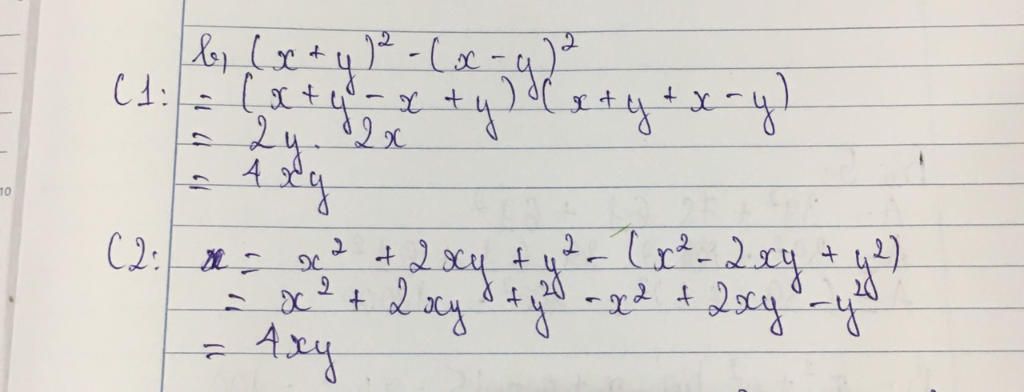 b, (x + y)² - (x - y)²
C1: = (x + y - x + y) (x + y + x - y)
= 2y. 2x
= 4xy
C2: = x² + 2xy + y² - (x² - 2xy + y²)
= x² + 2xy + y² - x² + 2xy - y²
= 4xy
10